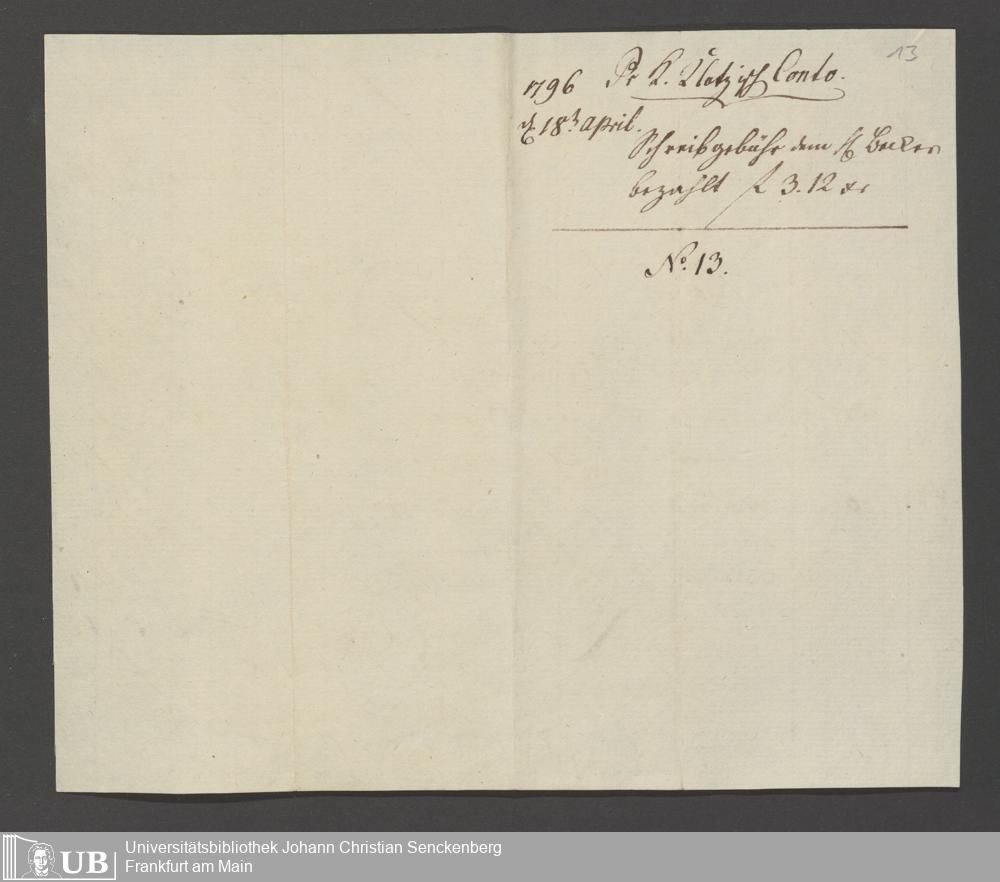 13
1796 Pr K. Klotzisch Conto.
d. 18t April.
Schreibgebühr dem H Becker
bezahlt f 3.12 xr
No. 13.
UB Universitätsbibliothek Johann Christian Senckenberg
Frankfurt am Main